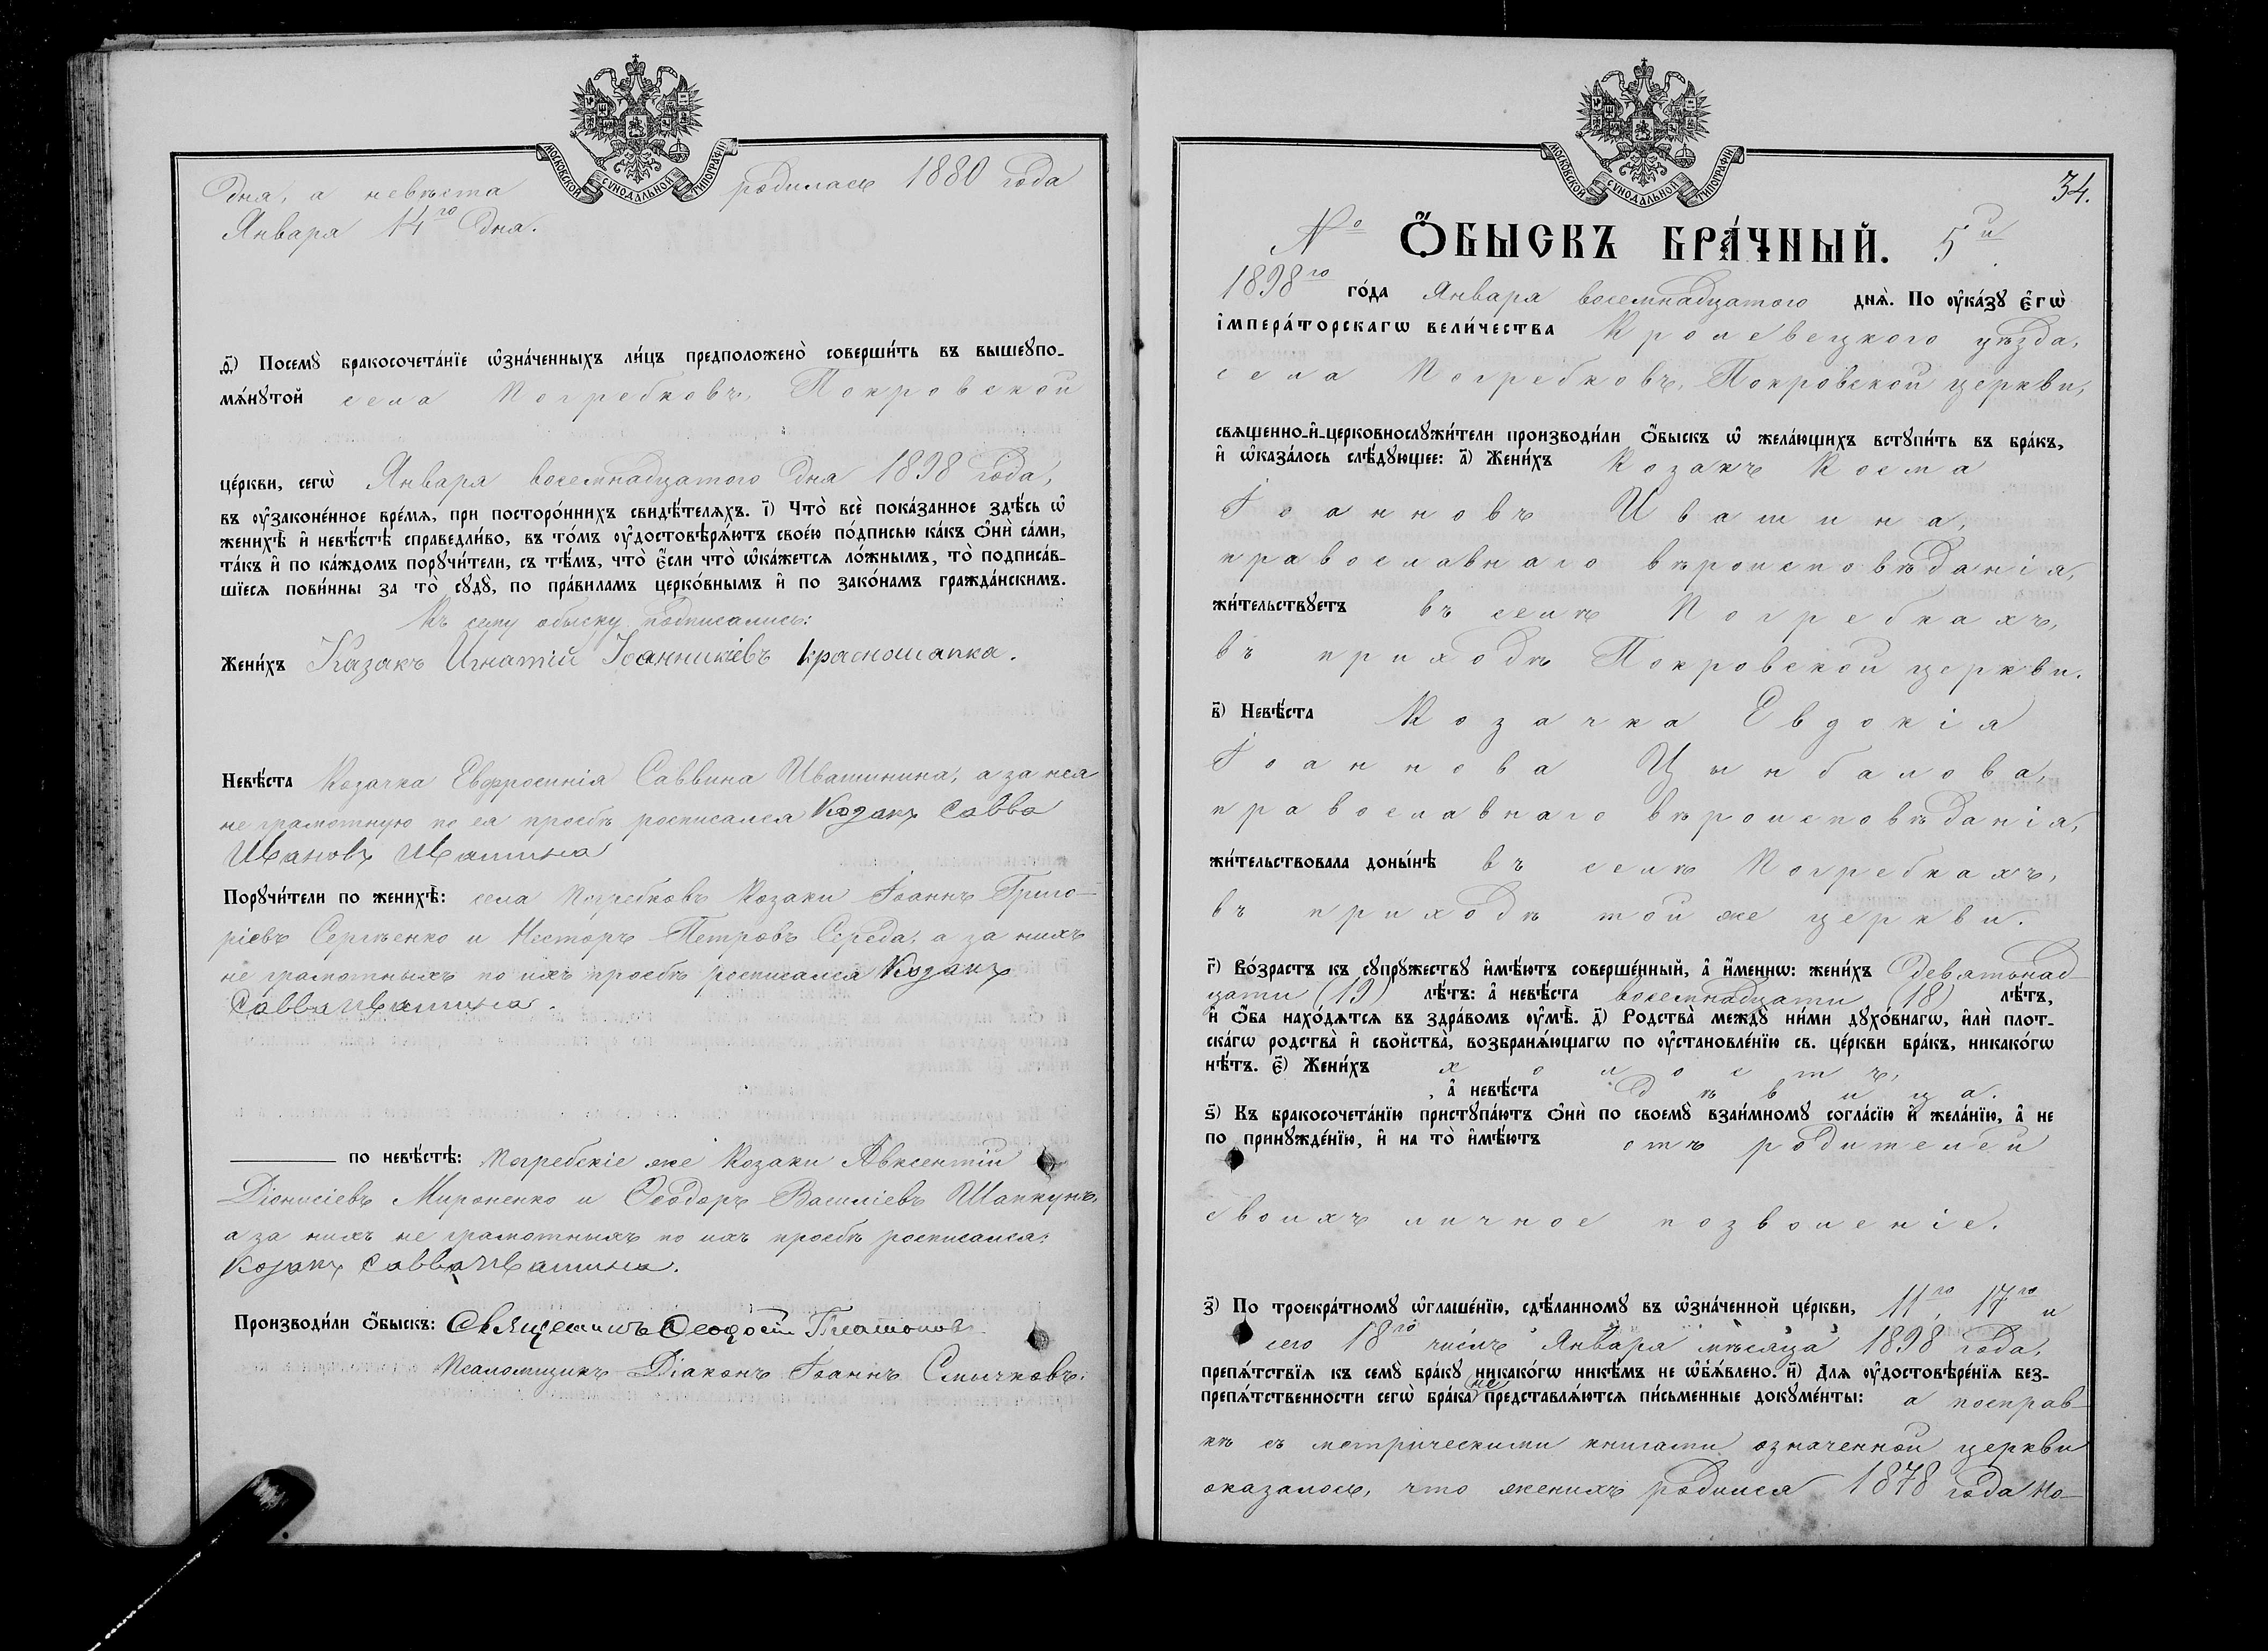 МОСКОВСКОЙ СѴНОДАЛЬНОЙ ТИПОГРАФІИ
Дня, а невѣста родилась 1880 года
Января 14го Дня.
д҃і) Посемꙋ̀ бракосочета́нїе ѡ҆зна́ченныхъ ли́цъ предположено̀ соверши́ть въ вышеꙋпо-
мѧ́нꙋтой села Погребковъ, Покровской
це́ркви, сегѡ̀ Января восемнадцатого Дня 1898 года,
въ оу҆законе́нное вре́мѧ, при посторо́ннихъ свидѣ́телѧхъ. і҃) Что̀ всѐ пока́занное здѣ́сь ѡ҆
женихѣ̀ и҆ невѣ́стѣ справедли́во, въ то́мъ оу҆достовѣрѧ́ютъ свое́ю по́дписью ка́къ ѻ҆нѝ са́ми,
та́къ и҆ по ка́ждомъ порꙋчи́тели, съ тѣ́мъ, что̀ є҆́сли что̀ ѡ҆ка́жетсѧ ло́жнымъ, то̀ подписа́в-
шїесѧ пови́нны за то̀ сꙋдꙋ̀, по пра́виламъ церко́внымъ и҆ по зако́намъ гражда́нскимъ.
Къ сему обыску подписались:
Жени́хъ Казакъ Игнатій Іоанникіевъ Красношапка.
Невѣ́ста Козачка Евфросинія Саввина Ивашинина, а за нея
не грамотную по ея просьбѣ росписался Козакъ Савва
Ивановъ Ивашина
Порꙋчи́тели по женихѣ̀: села Погребковъ Козаки Іоаннъ Григо-
ріевъ Сергѣенко и Несторъ Петровъ Середа, а за нихъ
не грамотныхъ по ихъ просьбѣ росписался Козакъ
Савва Ивашина.
по невѣ́стѣ: Погребскіе же Козаки Авксентій
Діонисіевъ Мироненко и Ѳеодоръ Василіевъ Шапкунъ,
а за нихъ не грамотныхъ по ихъ просьбѣ росписался:
Козакъ Савва Ивашина.
Производи́ли ѻ҆́быскъ: Священникъ Ѳеодосій Платоновъ
Псаломщикъ Діаконъ Іоаннъ Смычковъ.
МОСКОВСКОЙ СѴНОДАЛЬНОЙ ТИПОГРАФІИ
34.
№ Ѻ҆́БЫСКЪ БРА́ЧНЫЙ. 5й
1898го го́да Января восемнадцатого днѧ̀. По оу҆ка́зꙋ є҆гѡ̀
і҆мпера́торскагѡ вели́чества Кролевецкого уѣзда,
села Погребковъ, Покровской церкви,
свѧщенно-и҆-церковнослꙋжи́тели производи́ли ѻ҆́быскъ ѡ҆ жела́ющихъ вступи́ть въ бра́къ,
и҆ ѡ҆каза́лось слѣ́дꙋющее: а҃) Жени́хъ Козакъ Косма
Іоанновъ Ивашина,
православнаго вѣроисповѣданія,
жи́тельствꙋетъ въ селѣ Погребкахъ,
въ приходѣ Покровской церкви.
в҃) Невѣ́ста Козачка Евдокія
Іоаннова Цымбалова,
православнаго вѣроисповѣданія,
жи́тельствовала доны́нѣ въ селѣ Погребкахъ,
въ приходѣ той же церкви.
г҃) Во́зрастъ къ сꙋпрꙋжествꙋ и҆мѣ́ютъ соверше́нный, а҆ и҆́меннѡ: жени́хъ девятьнад-
цати (19) лѣ́тъ: а҆ невѣ́ста восемнадцати (18) лѣ́тъ,
и҆ ѻ҆́ба нахо́дѧтсѧ въ здра́вомъ оу҆мѣ̀. д҃) Родства̀ междꙋ̀ ни́ми дꙋхо́внагѡ, и҆лѝ плот-
ска́гѡ родства̀ и҆ сво́йства̀, возбранѧ́ющагѡ по оу҆становле́нїю св. це́ркви бра́къ, никако́гѡ
нѣ́тъ. є҃) Жени́хъ холостъ,
, а҆ невѣ́ста дѣвица.
ѕ҃) Къ бракосочета́нїю пристꙋпа́ютъ ѻ҆нѝ по своемꙋ̀ взаи́мномꙋ согла́сїю и҆ жела́нїю, а҆ не
по принꙋжде́нїю, и҆ на то̀ и҆мѣ́ютъ отъ родителей
своихъ личное позволеніе.
з҃) По троекра́тномꙋ ѡ҆глаше́нїю, сдѣ́ланномꙋ въ ѡ҆зна́ченной це́ркви, 11го, 17го и
сего 18го числъ Января мѣсяца 1898 года,
препѧ́тствїѧ къ семꙋ̀ бра́кꙋ никако́гѡ никѣ́мъ не ѡ҆б̾ѧ́влено. и҃) Длѧ оу҆достовѣре́нїѧ без-
препѧ́тственности сегѡ̀ бра́ка не представлѧ́ютсѧ пи́сьменные докꙋме́нты: а посправ-
кѣ съ метрическими книгами означенной церкви
оказалось, что женихъ родился 1878 года Но-